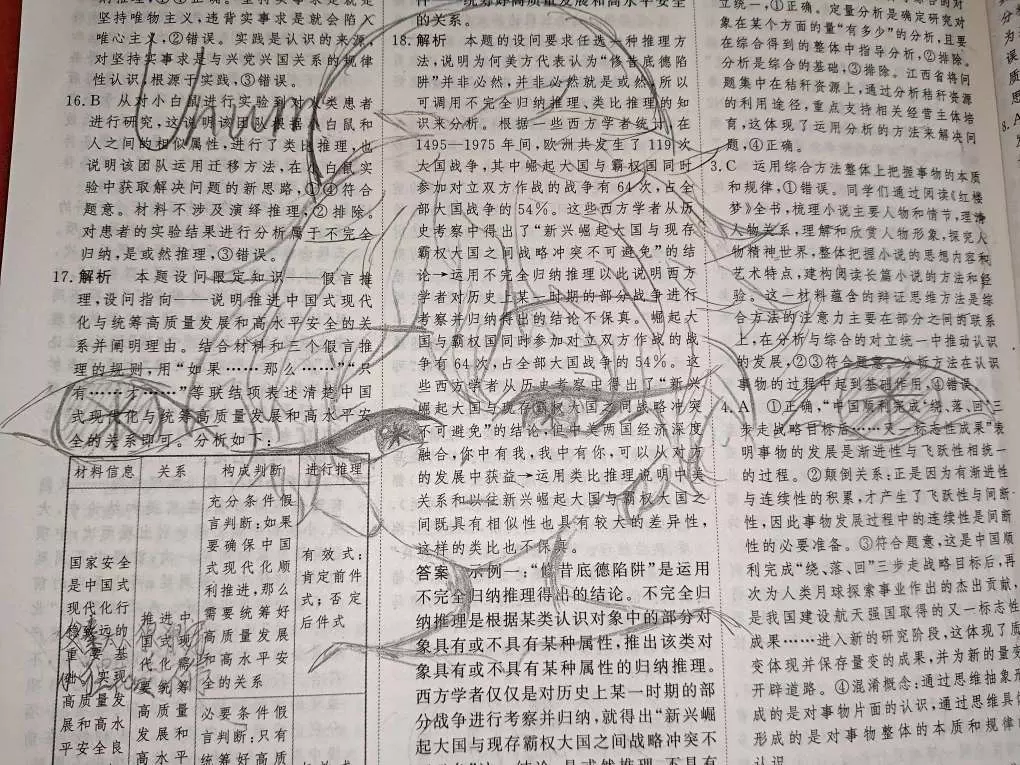 坚持唯物主义，违背实事求是就会陷入
唯心主义，②错误。实践是认识的来源，
对坚持实事求是与兴党兴国关系的规律
性认识，根源于实践，③错误。
16. B 从对小白鼠进行实验到对人类患者
进行研究，这说明该团队根据小白鼠和
人之间的相似属性，进行了类比推理，也
说明该团队运用迁移方法，在小白鼠实
验中获取解决问题的新思路，①④符合
题意。材料不涉及演绎推理，②排除。
对患者的实验结果进行分析属于不完全
归纳，是或然推理，③错误。
17. 解析 本题设问限定知识——假言推
理，设问指向——说明推进中国式现代
化与统筹高质量发展和高水平安全的关
系并阐明理由。结合材料和三个假言推
理的规则，用“如果……那么……”“只
有……才……”等联结项表述清楚中国
式现代化与统筹高质量发展和高水平安
全的关系即可。分析如下：
材料信息 关系 构成判断 进行推理
国家安全
是中国式
现代化行
稳致远的
重要基
实现
高质量发
展和高水
平安全良
推进中
国式现
代化需
要统筹
高质量
发展和
高水平
充分条件假
言判断：如果
要确保中国
式现代化顺
利推进，那么
需要统筹好
高质量发展
和高水平安
全的关系
必要条件假
言判断：只有
统筹好高质
有效式：
肯定前件
式；否定
后件式
的关系。
18. 解析 本题的设问要求任选一种推理方
法，说明为何美方代表认为“修昔底德陷
阱”并非必然，并非必然就是或然，所以
可调用不完全归纳推理、类比推理的知
识来分析。根据一些西方学者统计，在
1495—1975年间，欧洲共发生了119次
大国战争，其中崛起大国与霸权国同时
参加对立双方作战的战争有64次，占全
部大国战争的54%。这些西方学者从历
史考察中得出了“新兴崛起大国与现存
霸权大国之间战略冲突不可避免”的结
论→运用不完全归纳推理以此说明西方
学者对历史上某一时期的部分战争进行
考察并归纳得出的结论不保真。崛起大
国与霸权国同时参加对立双方作战的战
争有64次，占全部大国战争的54%。这
些西方学者从历史考察中得出了“新兴
崛起大国与现存霸权大国之间战略冲突
不可避免”的结论，但中美两国经济深度
融合，你中有我，我中有你，可以从对方
的发展中获益→运用类比推理说明中美
关系和以往新兴崛起大国与霸权大国之
间既具有相似性也具有较大的差异性，
这样的类比也不保真。
答案 示例一：“修昔底德陷阱”是运用
不完全归纳推理得出的结论。不完全归
纳推理是根据某类认识对象中的部分对
象具有或不具有某种属性，推出该类对
象具有或不具有某种属性的归纳推理。
西方学者仅仅是对历史上某一时期的部
分战争进行考察并归纳，就得出“新兴崛
起大国与现存霸权大国之间战略冲突不
立统一，①正确。定量分析是确定研究对
象在某个方面的量“有多少”的分析，且要
在综合得到的整体中指导分析，②排除。
分析是综合的基础，③排除。江西省将问
题集中在秸秆资源上，通过分析秸秆资源
的利用途径，重点支持相关经营主体培
育，这体现了运用分析的方法来解决问
题，④正确。
3. C 运用综合方法整体上把握事物的本质
和规律，①错误。同学们通过阅读《红楼
梦》全书，梳理小说主要人物和情节，理清
人物关系，理解和欣赏人物形象，探究人
物精神世界，整体把握小说的思想内容和
艺术特点，建构阅读长篇小说的方法和经
验。这一材料蕴含的辩证思维方法是综
合方法的注意力主要在部分之间的联系
上，在分析与综合的对立统一中推动认识
的发展，②③符合题意。分析方法在认识
事物的过程中起到基础作用，④错误。
4. A ①正确，“中国顺利完成‘绕、落、回’三
步走战略目标后……又一标志性成果”表
明事物的发展是渐进性与飞跃性相统一
的过程。②颠倒关系：正是因为有渐进性
与连续性的积累，才产生了飞跃性与间断
性，因此事物发展过程中的连续性是间断
性的必要准备。③符合题意，这是中国顺
利完成“绕、落、回”三步走战略目标后，再
次为人类月球探索事业作出的杰出贡献，
是我国建设航天强国取得的又一标志性
成果……进入新的研究阶段，这体现了质
变体现并保存量变的成果，并为新的量变
开辟道路。④混淆概念：通过思维抽象形
成的是对事物片面的认识，通过思维具体
形成的是对事物整体的本质和规律的
认识